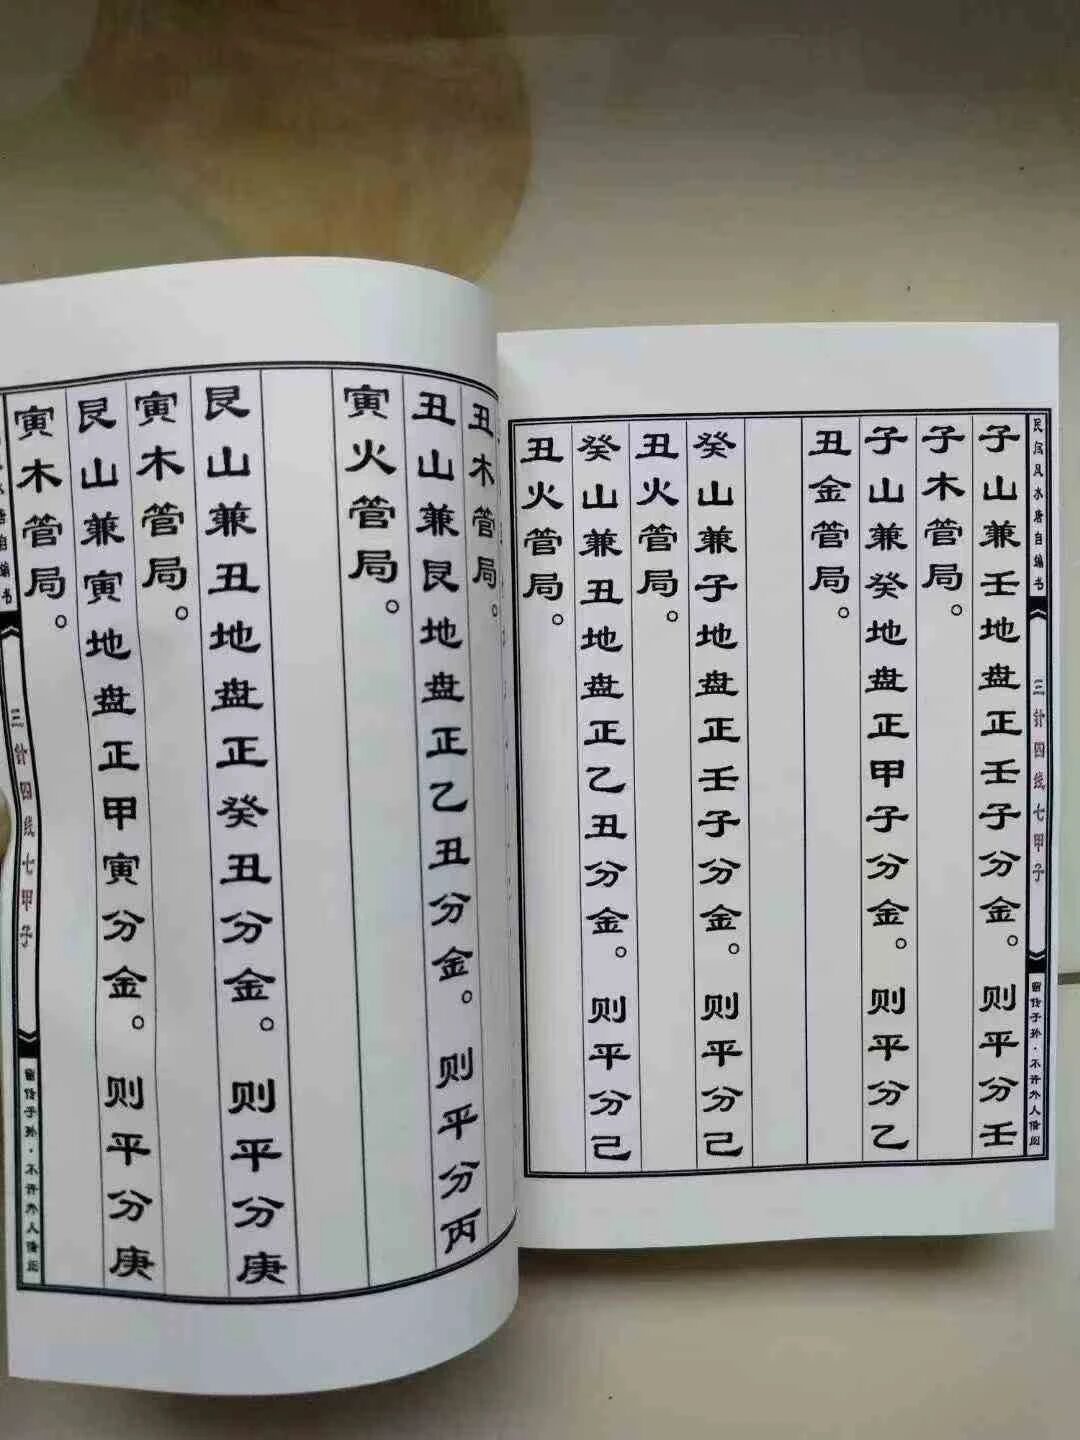 民间风水唐自编书
三针四线七甲子
留传子孙·不许外人借阅
子山兼壬地盘正壬子分金。则平分壬
子木管局。
子山兼癸地盘正甲子分金。则平分乙
丑金管局。
癸山兼子地盘正壬子分金。则平分己
丑火管局。
癸山兼丑地盘正乙丑分金。则平分己
丑火管局。
丑木管局。
丑山兼艮地盘正乙丑分金。则平分丙
寅火管局。
艮山兼丑地盘正癸丑分金。则平分庚
寅木管局。
艮山兼寅地盘正甲寅分金。则平分庚
寅木管局。
水唐自编书
三针四线七甲子
留传子孙·不许外人借阅